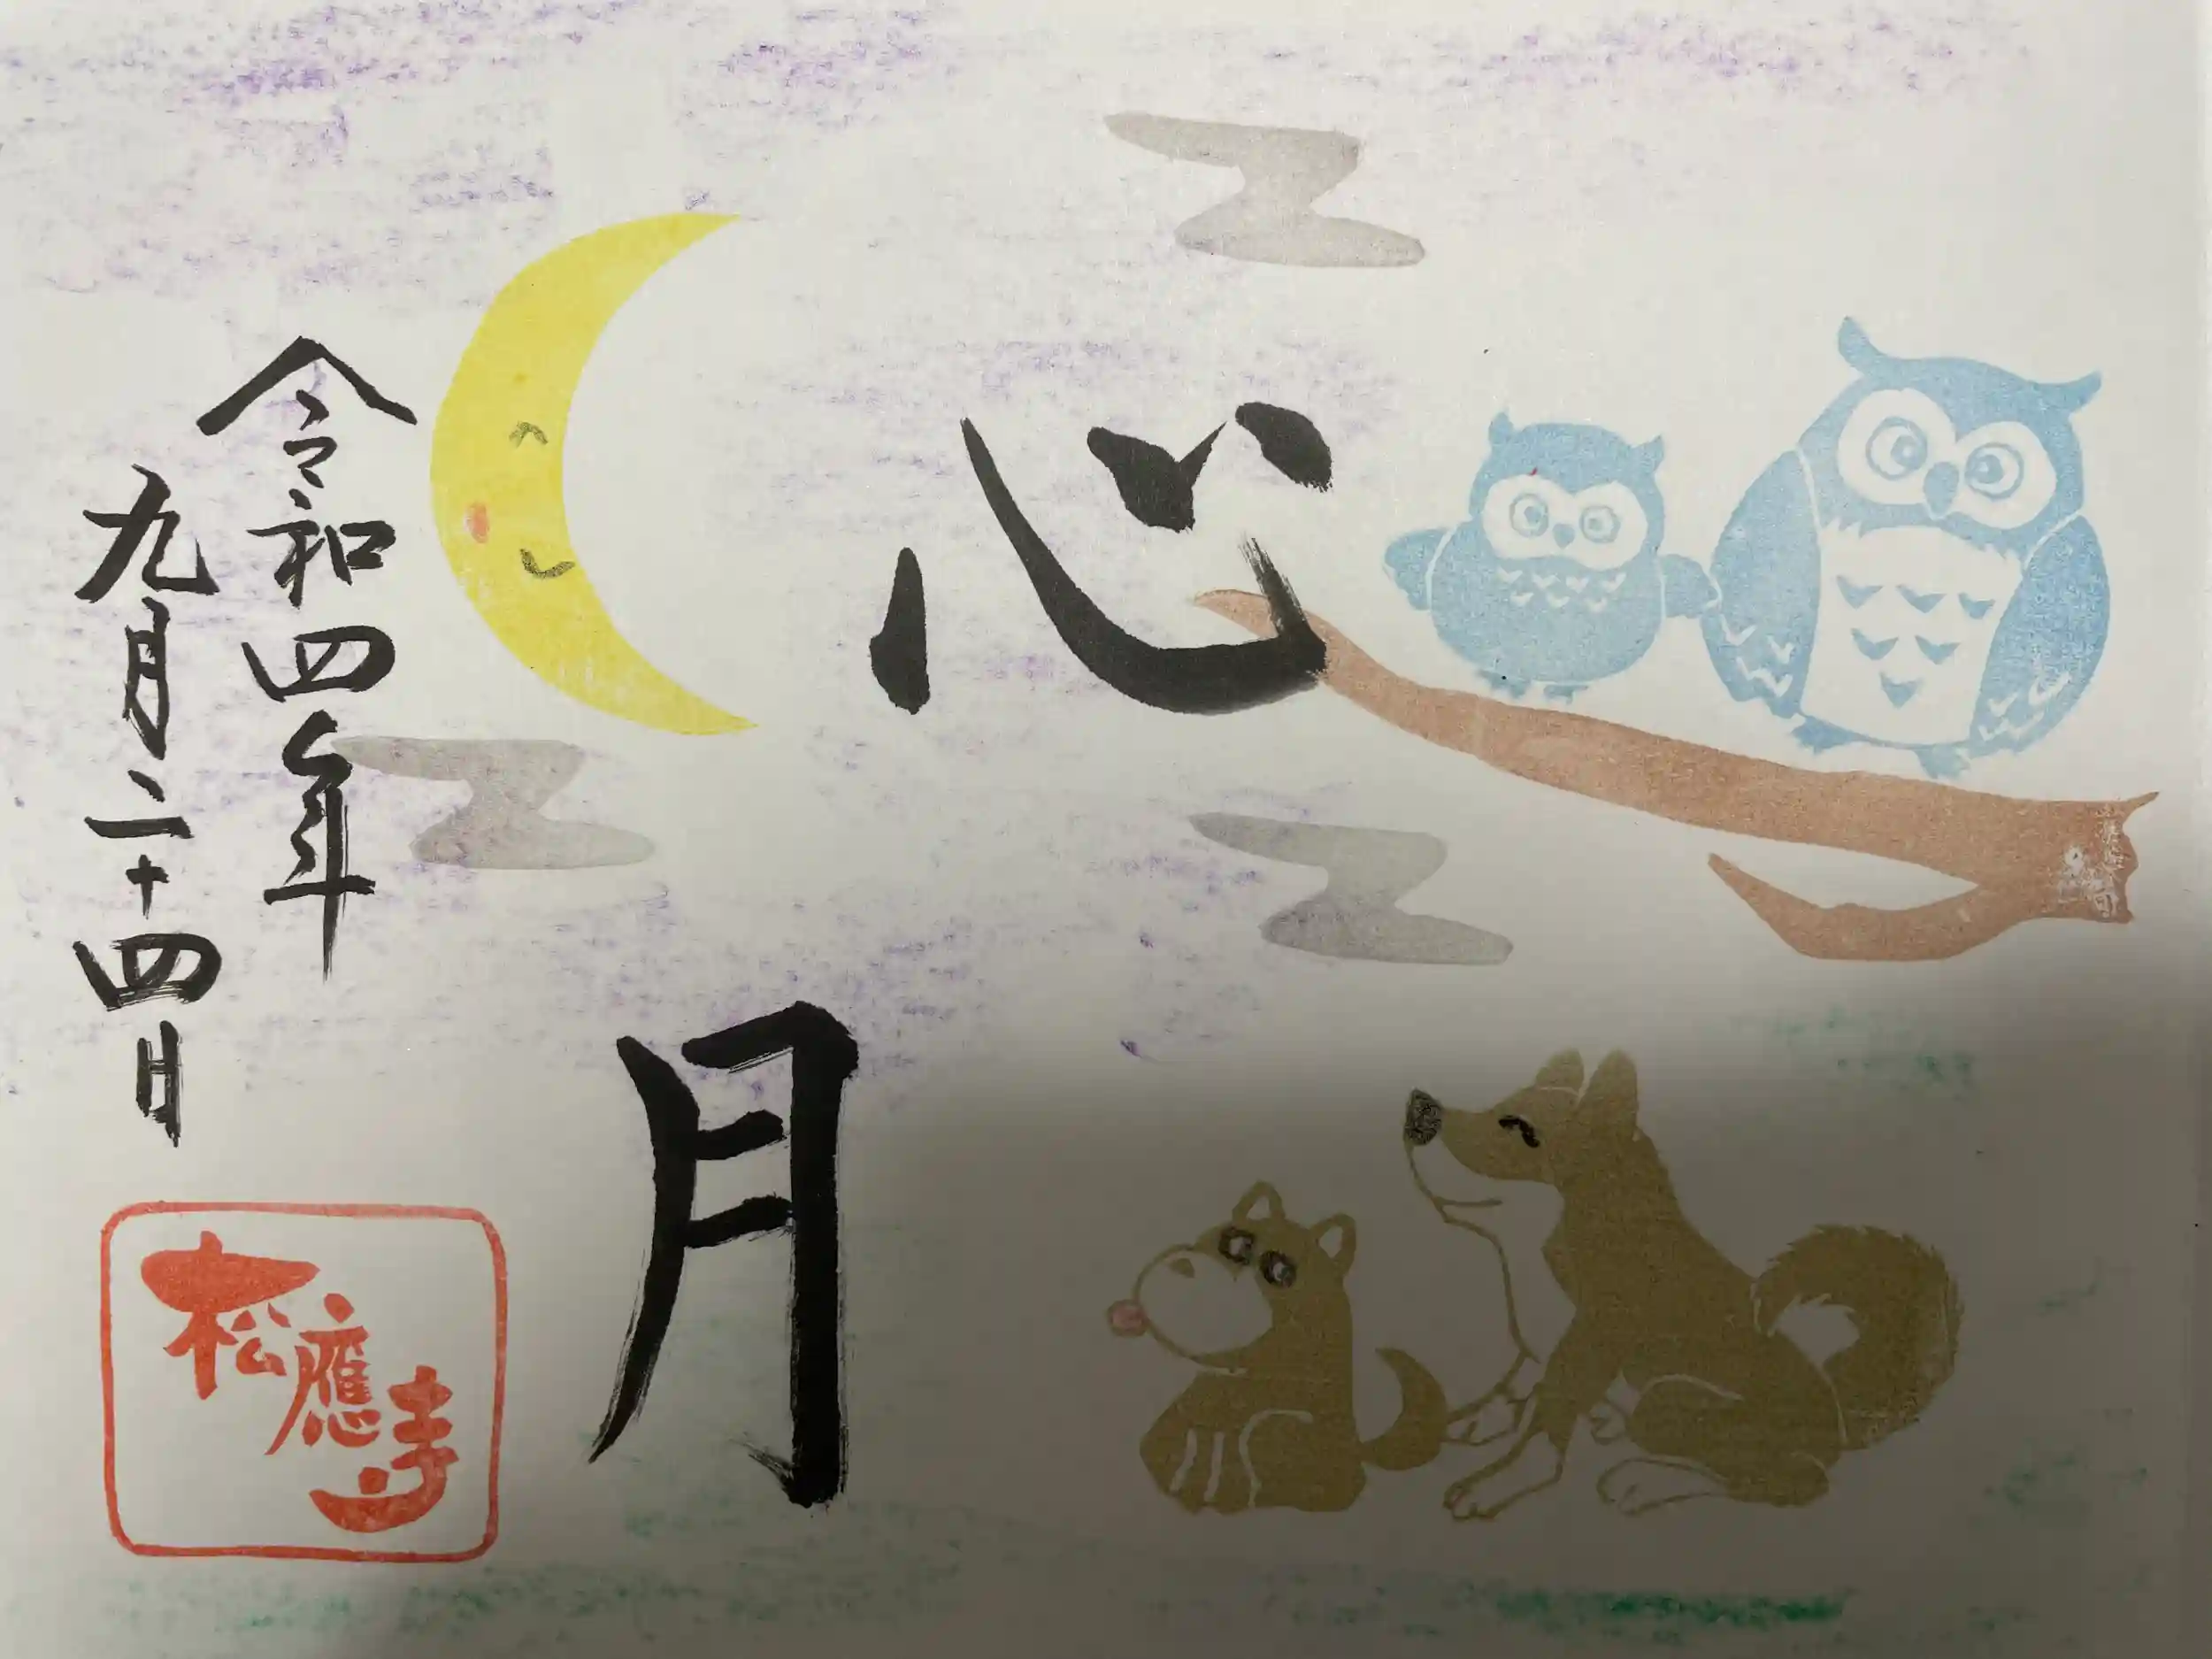 心月
令和四年
九月二十四日
松應寺